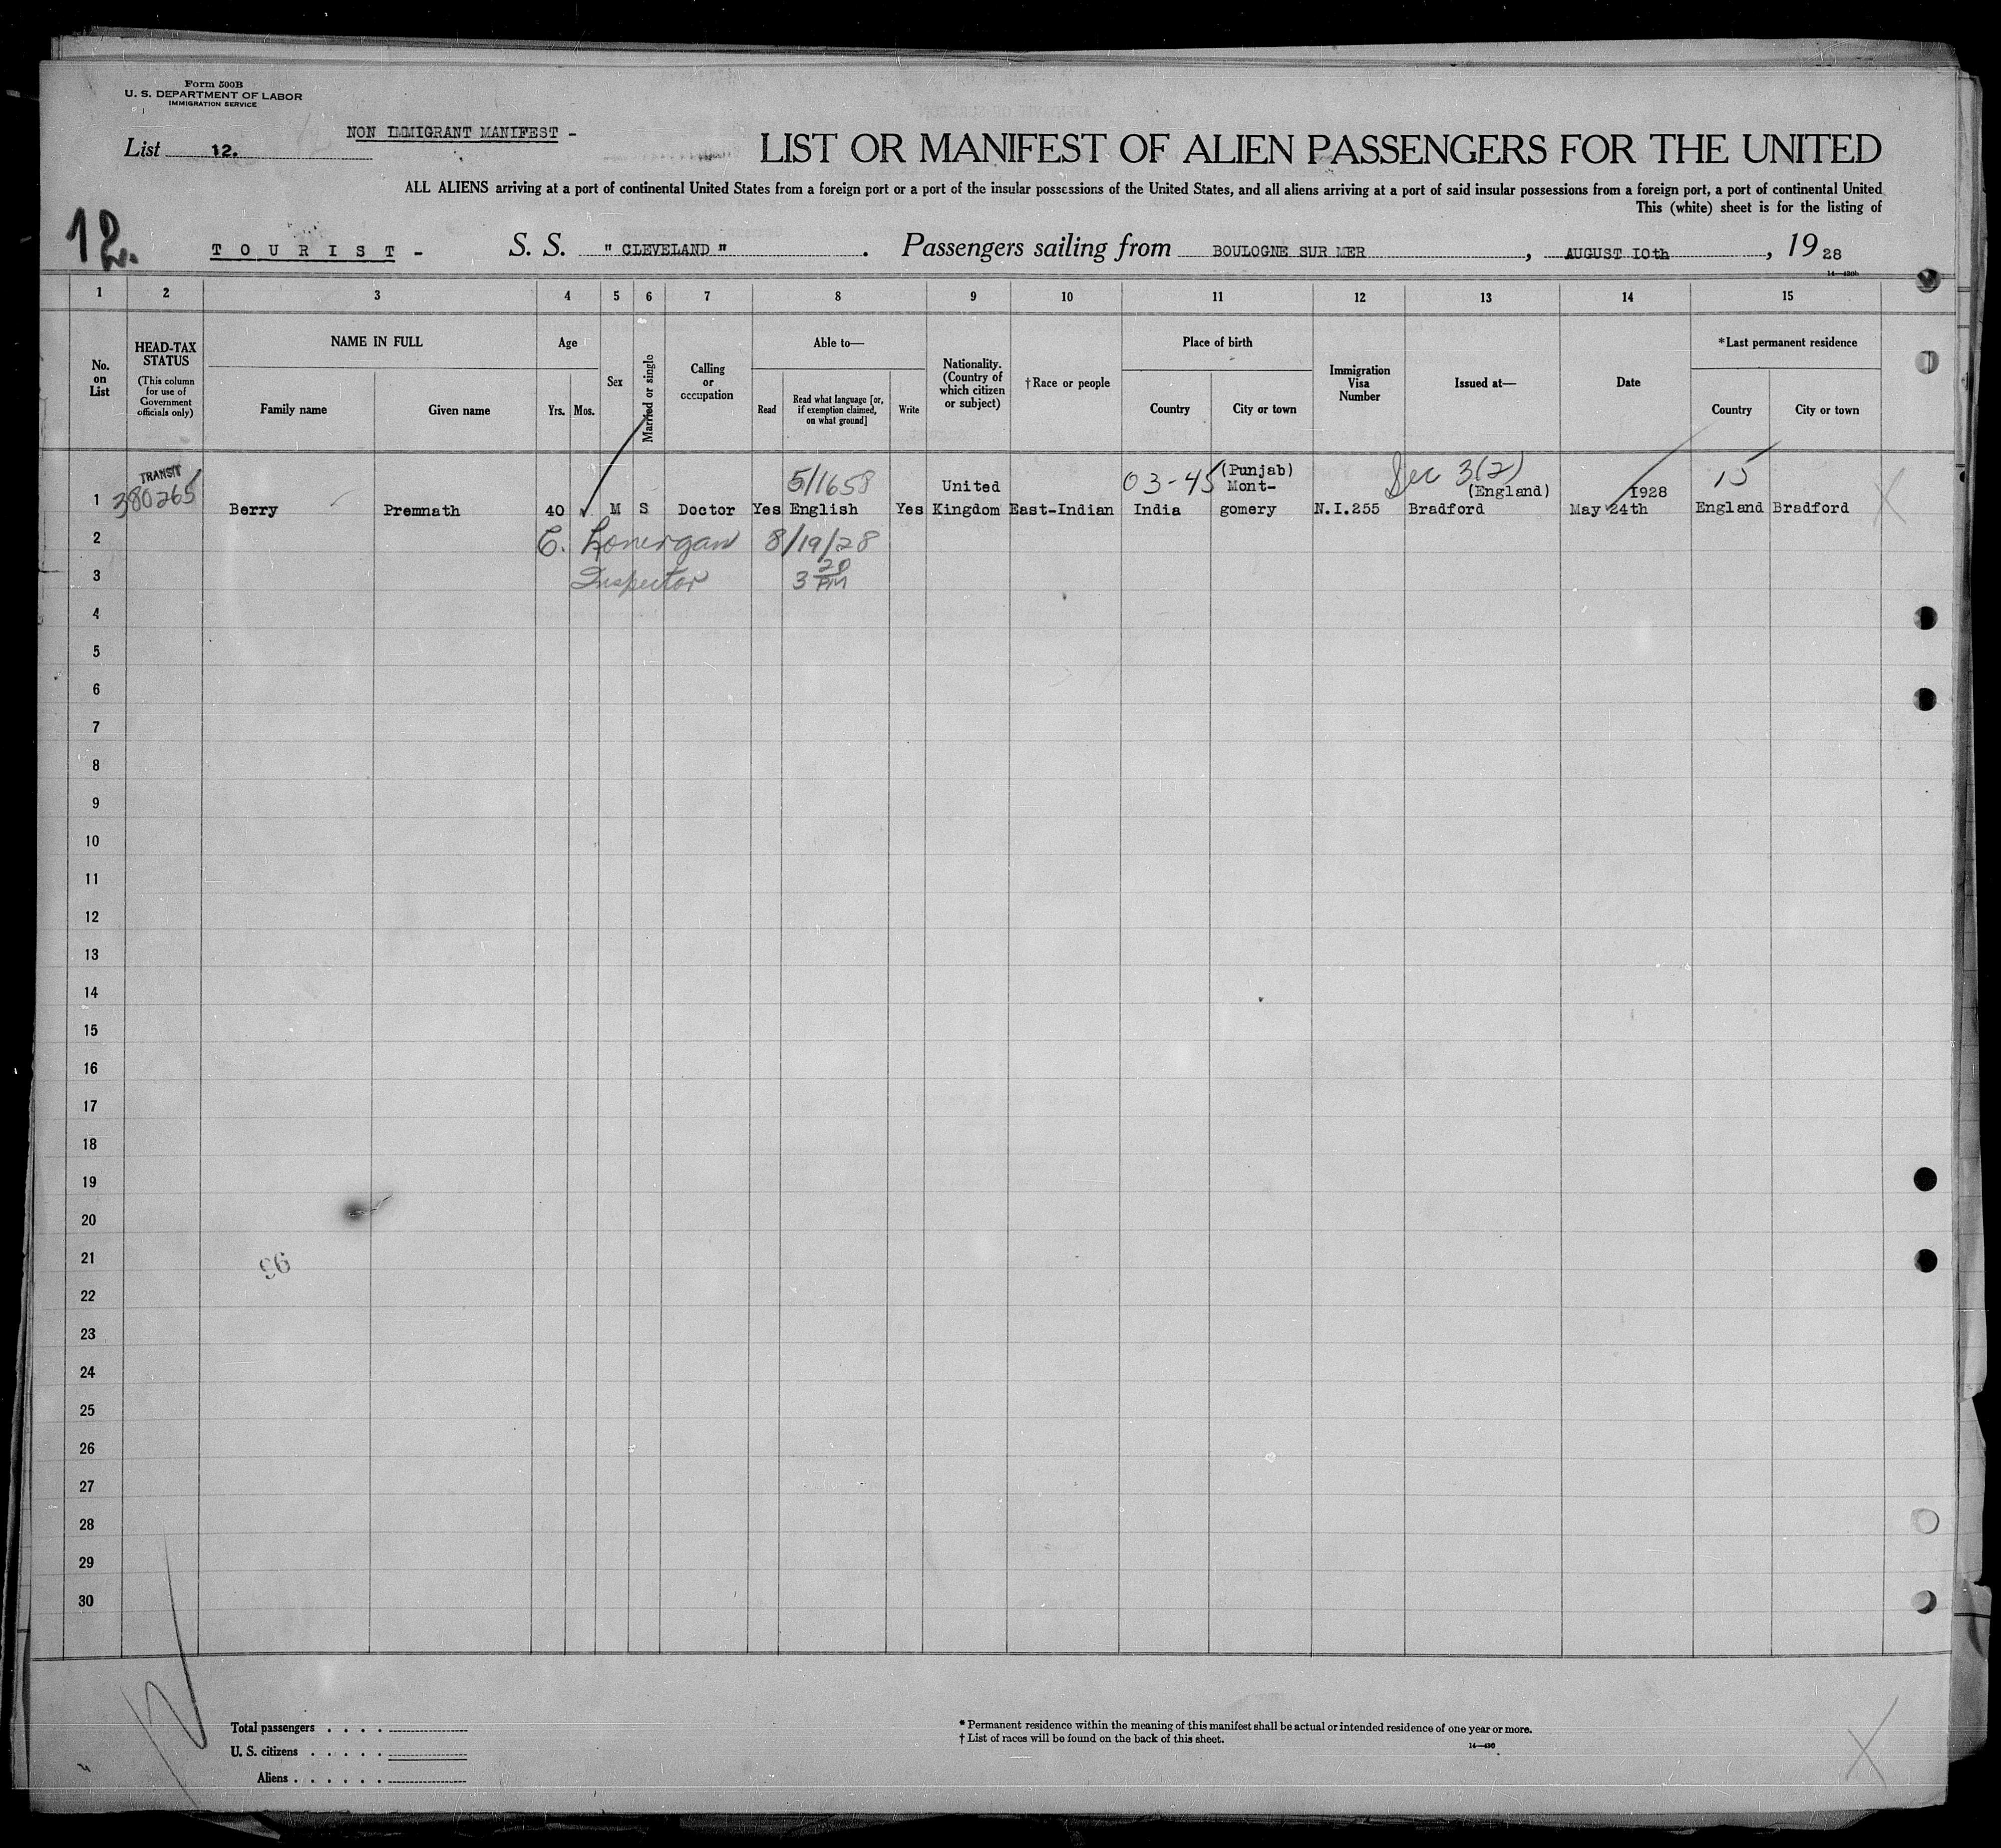 Form 500B
U. S. DEPARTMENT OF LABOR
IMMIGRATION SERVICE
NON IMMIGRANT MANIFEST -
List 12.
LIST OR MANIFEST OF ALIEN PASSENGERS FOR THE UNITED
ALL ALIENS arriving at a port of continental United States from a foreign port or a port of the insular possessions of the United States, and all aliens arriving at a port of said insular possessions from a foreign port, a port of continental United
This (white) sheet is for the listing of
12.
TOURIST - S. S. " CLEVELAND " . Passengers sailing from BOULOGNE SUR MER , AUGUST 10th , 1928
1 2 3 4 5 6 7 8 9 10 11 12 13 14 15
No. on List
HEAD-TAX STATUS (This column for use of Government officials only)
NAME IN FULL
Family name
Given name
Age
Yrs.
Mos.
Sex
Married or single
Calling or occupation
Able to—
Read
Read what language [or, if exemption claimed, on what ground]
Write
Nationality. (Country of which citizen or subject)
†Race or people
Place of birth
Country
City or town
Immigration Visa Number
Issued at—
Date
*Last permanent residence
Country
City or town
TRANSIT
5/1658
03-45
Sec 3(2)
15
1 380265 Berry Premnath 40 M S Doctor Yes English Yes United Kingdom East-Indian India (Punjab) Mont-gomery N.I.255 Bradford (England) May 24th 1928 England Bradford X
2 C. Lonergan 8/19/28
3 Inspector 3 20 PM
4
5
6
7
8
9
10
11
12
13
14
15
16
17
18
19
20
21
22
23
24
25
26
27
28
29
30
Total passengers . . . .
U. S. citizens . . . . .
Aliens . . . . . .
* Permanent residence within the meaning of this manifest shall be actual or intended residence of one year or more.
† List of races will be found on the back of this sheet.
14—430
X